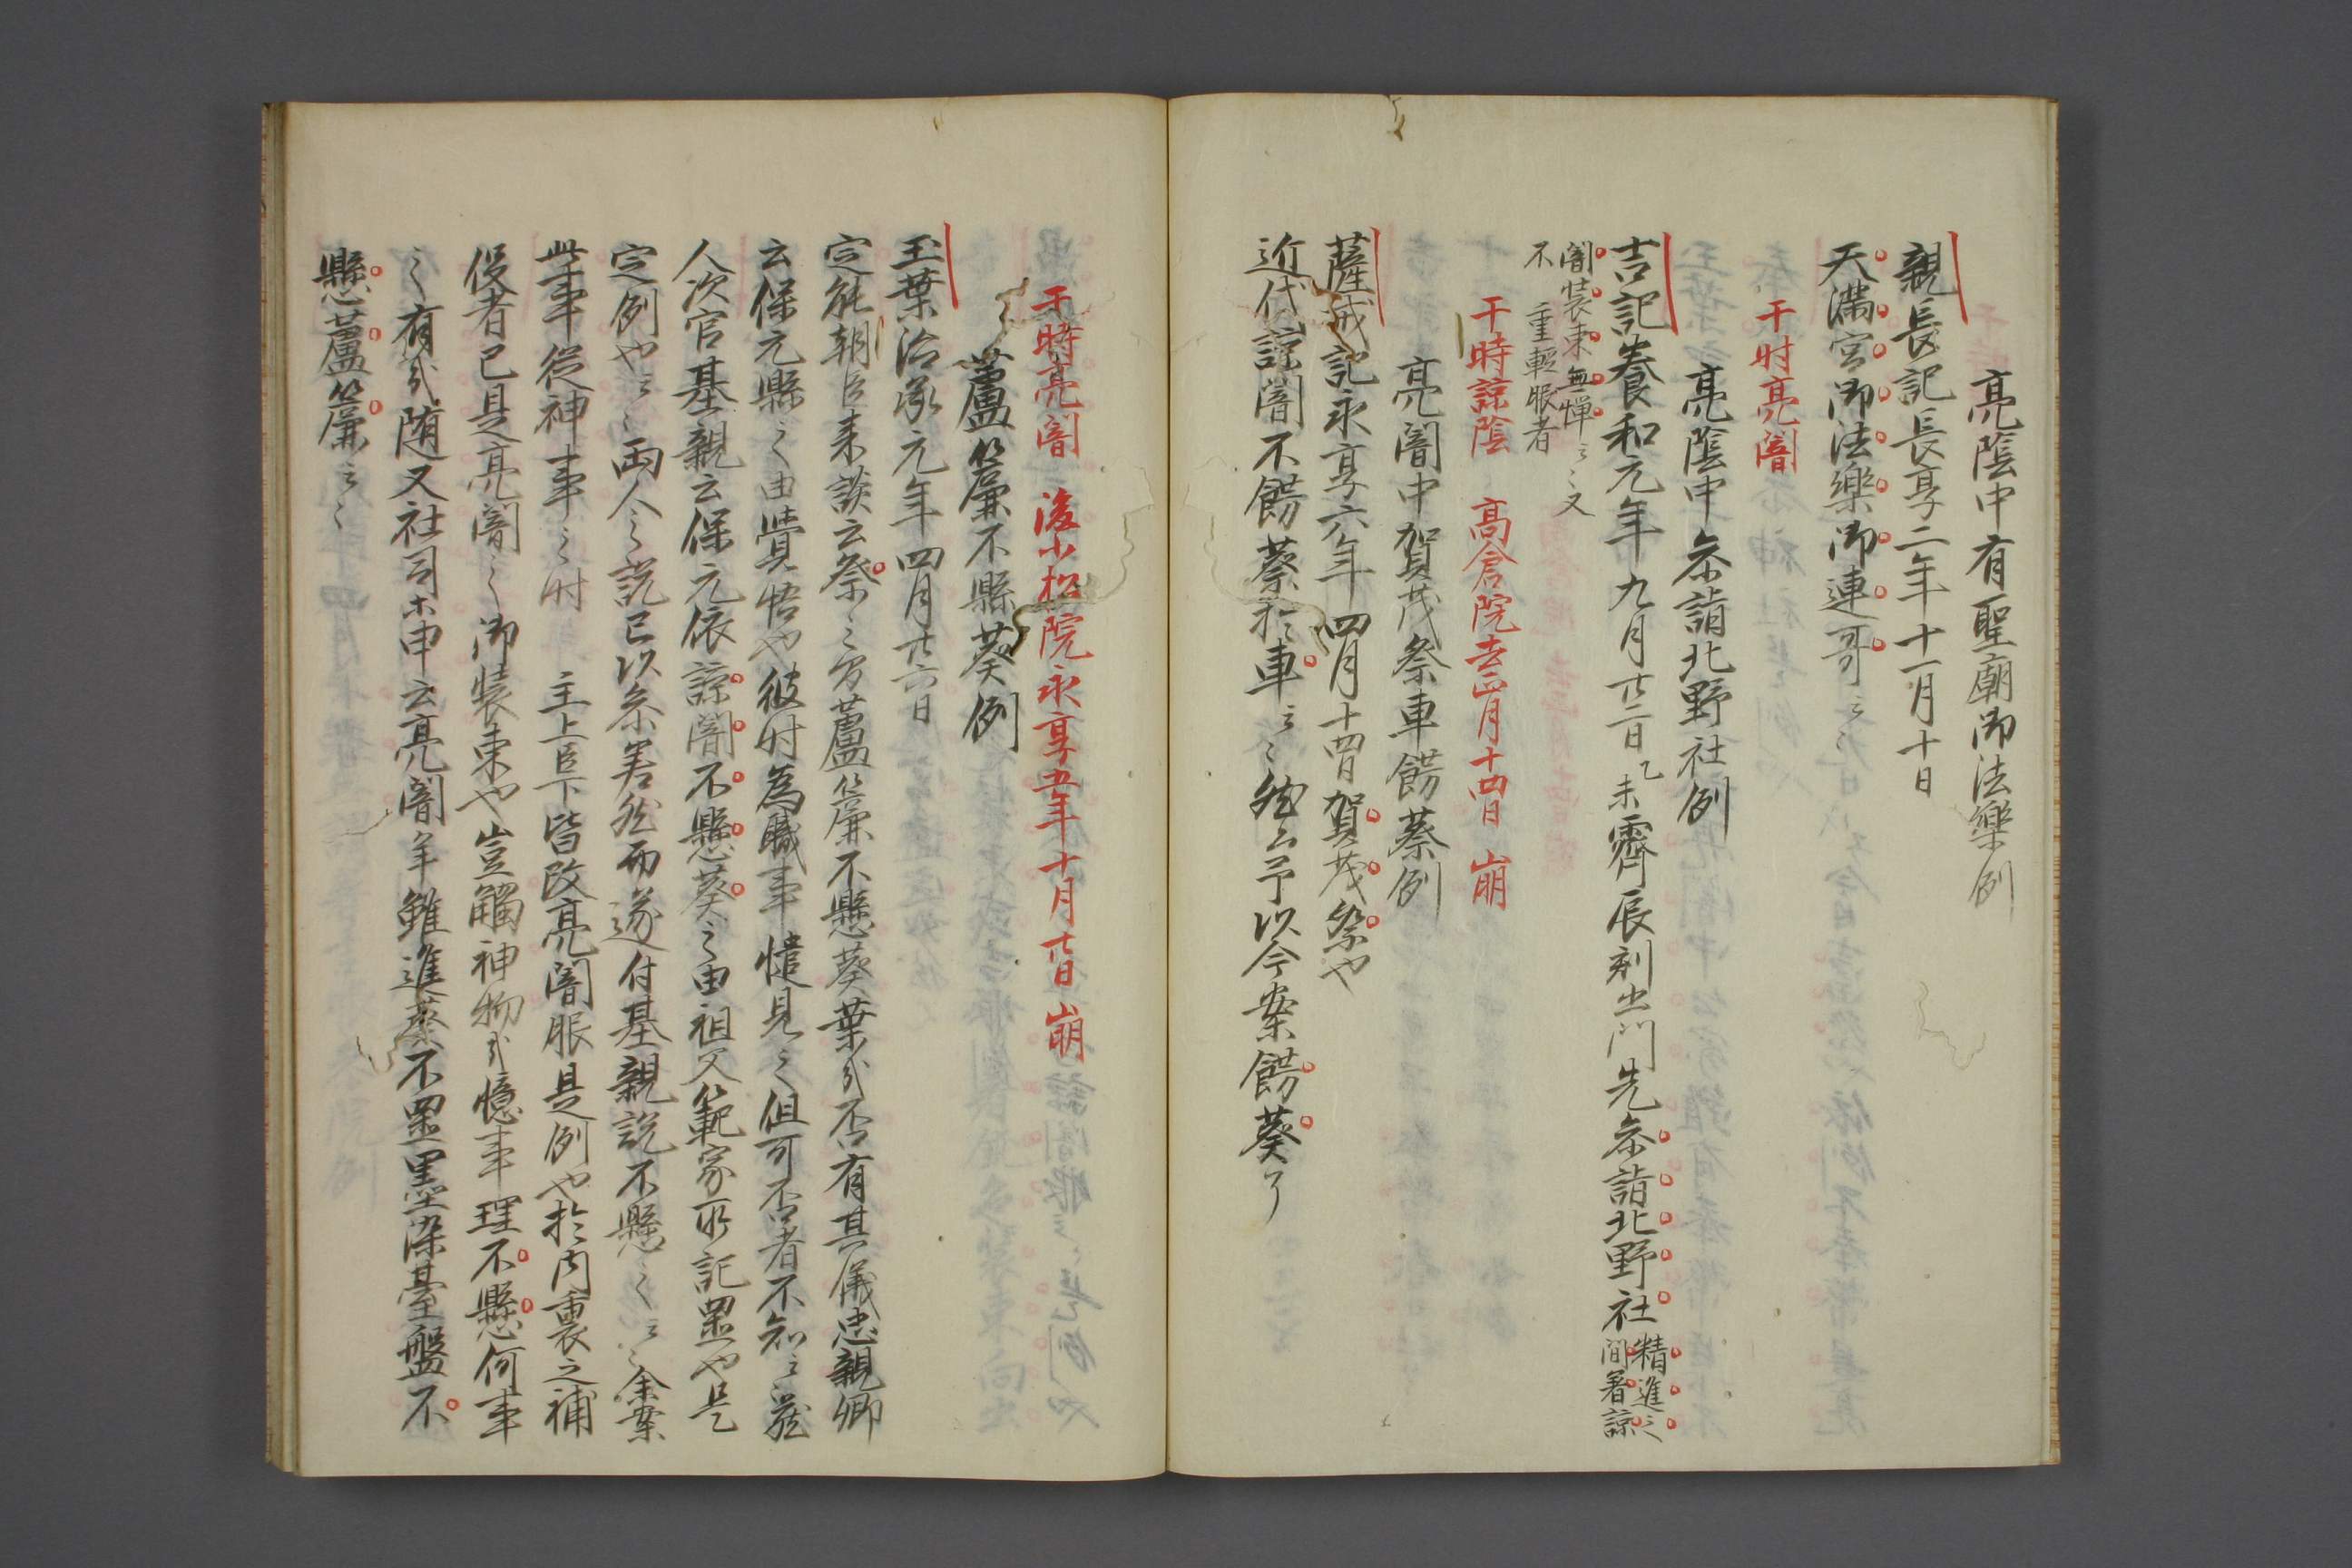 亮陰中有聖廟御法樂例
親長記長享二年十一月十日
天満宮御法樂御連哥云々
于时亮闇
亮陰中参詣北野社例
吉記養和元年九月廿二日乙未霽辰刻出门先参詣北野社精進之
間着諒
闇装束無憚云々又
不重輕服者
于時諒陰 高倉院去正月十四日崩
亮闇中賀茂祭車餝葵例
薩戒記永享六年四月十四日賀茂祭也
近代諒闇不餝葵於車云々然而予以今案餝葵了
于時亮闇 後小松院永享五年十月廿日崩
蘆簾不縣葵例
玉葉治承元年四月廿六日
定能朝臣来談云祭之間蘆簾不懸葵葉哉否有其儀忠親卿
云保元縣之由覚悟也彼时為職事慥見之但可否者不知之蔵
人次官基親云保元依諒闇不懸葵之由祖父範家所記置也是
定例也云々両人之説已以参差然而遂付基親説不懸之云々余案
此事従神事之时主上臣下皆改亮闇服是例也於内裏之補
役者已是亮闇之御装束也豈觸神物哉憶事理不懸何事
之有哉随又社司等申云亮闇年雖進葵不置墨染臺盤不
懸蘆簾云々